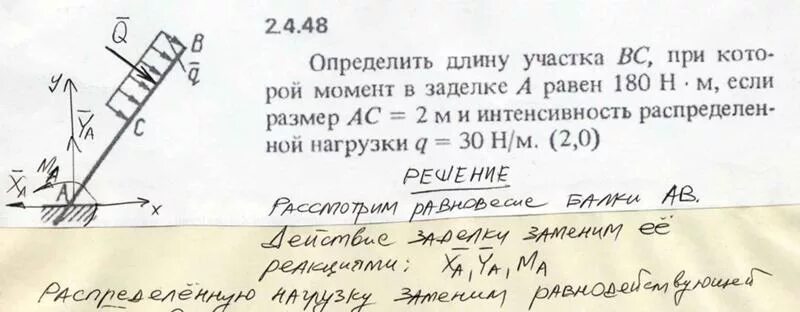 2.4.48
Определить длину участка BC, при кото-
рой момент в заделке A равен 180 Н · м, если
размер AC = 2 м и интенсивность распределен-
ной нагрузки q = 30 Н/м. (2,0)
Q̄
B
q̄
C
y
Ȳ_A
M_A
X̄_A
A
x
РЕШЕНИЕ
Рассмотрим равновесие балки AB.
Действие заделки заменим её
реакциями: X̄_A, Ȳ_A, M_A
Распределённую нагрузку заменим равнодействующей